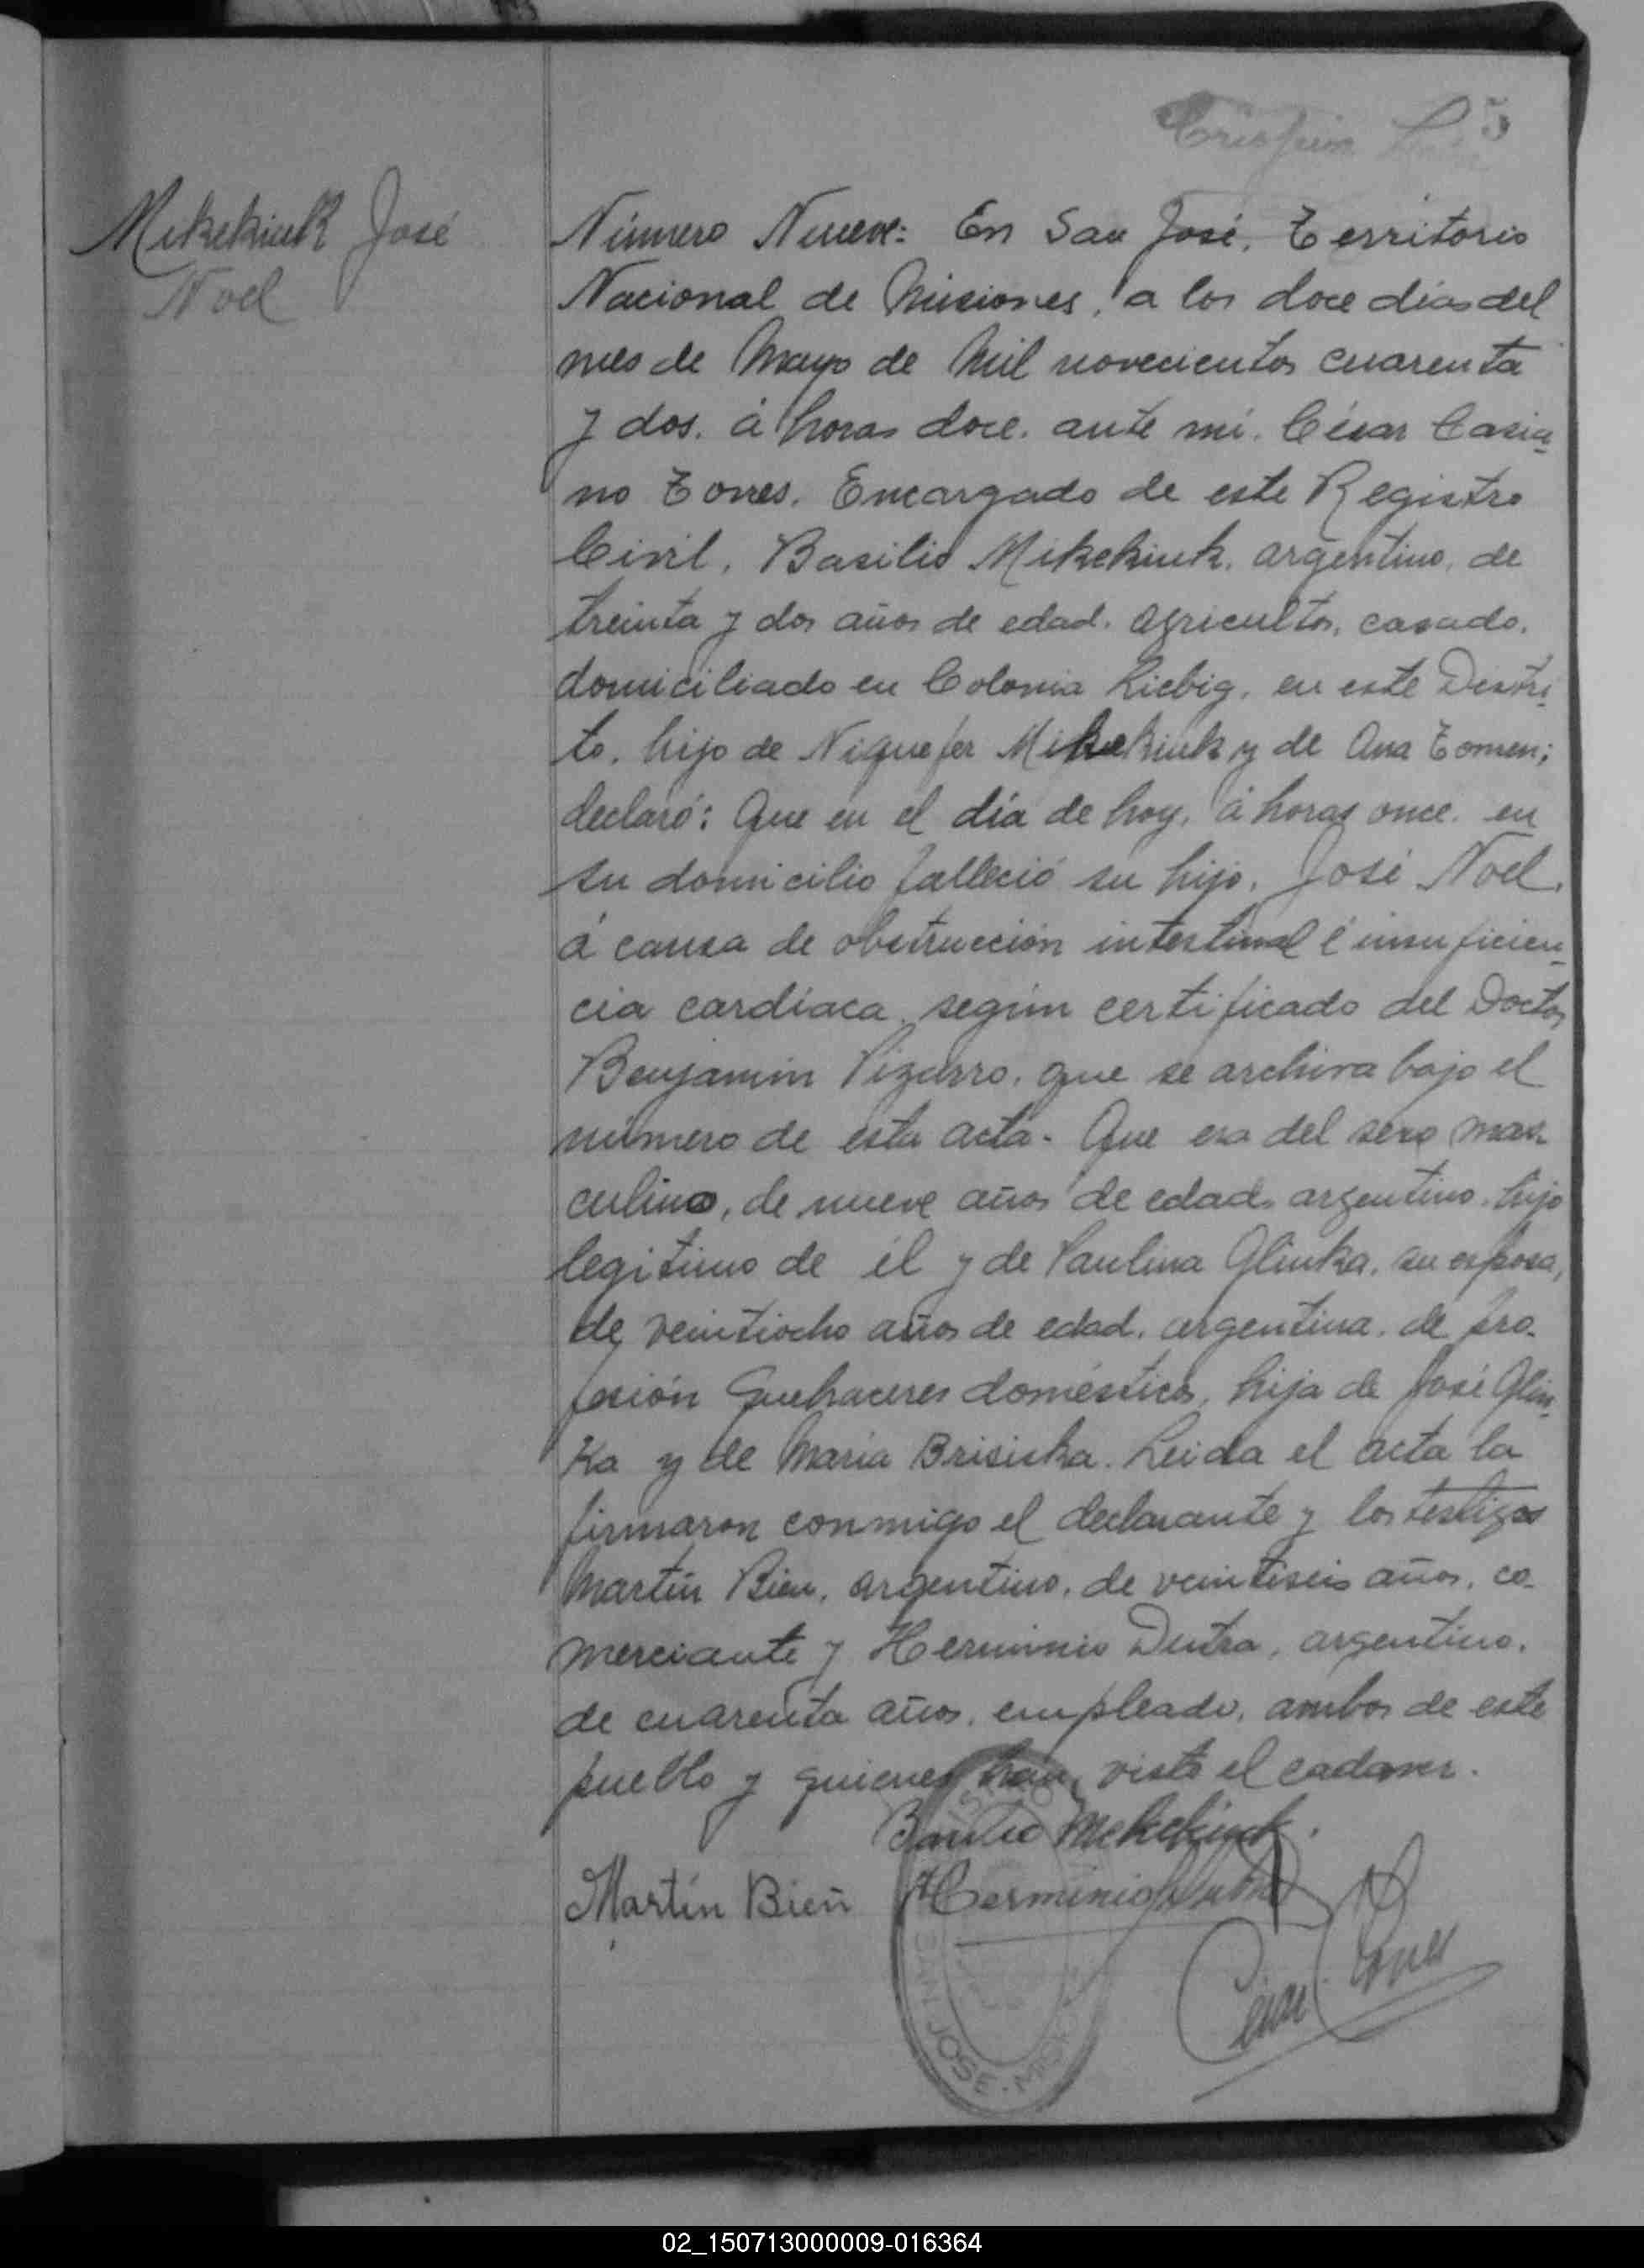 Crispin 5
Mikekiuk José
Noel
Número Nueve: En San José, Territorio
Nacional de Misiones, a los doce días del
mes de Mayo de Mil novecientos cuarenta
y dos. á horas doce. ante mí. César Casia-
no Torres. Encargado de este Registro
Civil, Basilio Mikekiuk, argentino, de
treinta y dos años de edad. agricultor, casado,
domiciliado en Colonia Liebig, en este Distri-
to, hijo de Niquefer Mikekiuk y de Ana Tomen;
declaró: Que en el día de hoy, á horas once. en
su domicilio falleció su hijo, José Noel,
á causa de obstrucción intestinal é insuficien-
cia cardíaca, según certificado del Doctor
Benjamin Pizarro, que se archiva bajo el
número de esta acta. Que era del sexo mas-
culino, de nueve años de edad, argentino, hijo
legitimo de él y de Paulina Glinka, su esposa,
de veintiocho años de edad, argentina, de pro-
fesión Quehaceres domésticos, hija de José Glin-
Ka y de Maria Brisiska. Leida el acta la
firmaron conmigo el declarante y los testigos
Martín Bien, argentino, de veintiseis años, co-
merciante y Herminio Dutra, argentino,
de cuarenta años, empleado, ambos de este
pueblo y quienes han visto el cadaver.
Basilio Mekekiuk.
Martín Bien Herminio Dutra
César Torres
SAN JOSE - MISIONES
02_150713000009-016364